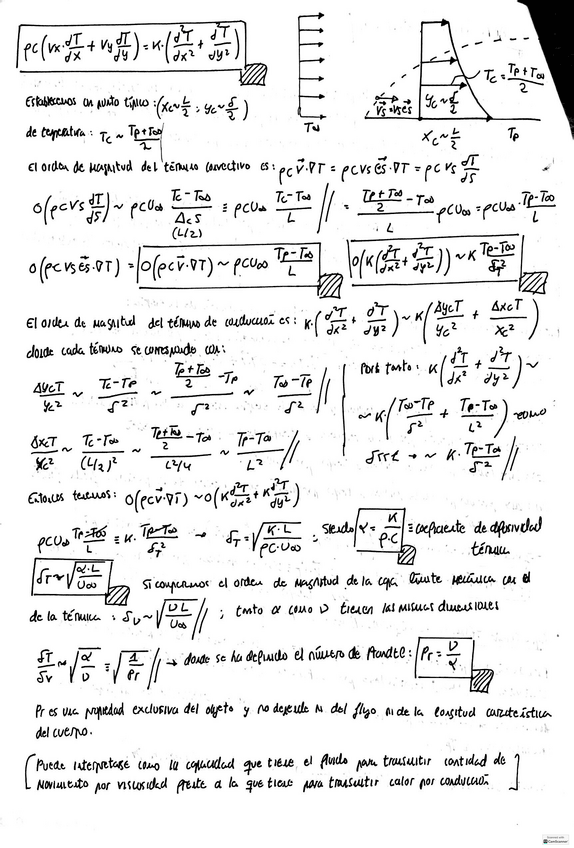 ρC(Vx·dT/dx + Vy dT/dy) = K·(d²T/dx² + d²T/dy²)
T∞
Vs = Vs es
Yc ~ δ/2
Tc = (Tp+T∞)/2
Xc ~ L/2
Tp
Establecemos un punto típico: (Xc ~ L/2 ; Yc ~ δ/2)
de temperatura: Tc ~ (Tp+T∞)/2
El orden de magnitud del término convectivo es: ρC V⃗·∇T = ρC Vs e⃗s·∇T = ρC Vs dT/dS
O(ρC Vs dT/dS) ~ ρC U∞ (Tc-T∞)/(Δc S) (L/2) ≡ ρC U∞ (Tc-T∞)/L // = ((Tp+T∞)/2 - T∞)/L ρC U∞ = ρC U∞·(Tp-T∞)/L
O(ρC Vs e⃗s·∇T) = O(ρC V⃗·∇T) ~ ρC U∞ (Tp-T∞)/L
O(K(d²T/dx² + d²T/dy²)) ~ K (Tp-T∞)/δT²
El orden de magnitud del término de conducción es: K·(d²T/dx² + d²T/dy²) ~ K(ΔycT/yc² + ΔxcT/xc²)
donde cada término se corresponde con:
ΔycT/yc² ~ (Tc-Tp)/δ² ~ ((Tp+T∞)/2 - Tp)/δ² ~ (T∞-Tp)/δ² //
ΔxcT/xc² ~ (Tc-T∞)/(L/2)² ~ ((Tp+T∞)/2 - T∞)/(L²/4) ~ (Tp-T∞)/L² //
Por tanto: K(d²T/dx² + d²T/dy²) ~
~ K·((T∞-Tp)/δ² + (Tp-T∞)/L²) ~ como
δ<<L → ~ K·(Tp-T∞)/δ² //
Entonces tenemos: O(ρC V⃗·∇T) ~ O(K d²T/dx² + K d²T/dy²)
ρC U∞ (Tp-T∞)/L ≡ K·(Tp-T∞)/δT² → δT = √(K·L/(ρC·U∞)) ; siendo α = K/(ρ·C) ≡ coeficiente de difusividad
térmica
δT ~ √(α·L/U∞)
Si comparamos el orden de magnitud de la capa límite mecánica con el
de la térmica: δν ~ √(νL/U∞) // ; tanto α como ν tienen las mismas dimensiones
δT/δν ~ √(α/ν) ≡ √(1/Pr) // → donde se ha definido el número de Prandtl: Pr = ν/α
Pr es una propiedad exclusiva del objeto y no depende ni del flujo ni de la longitud característica
del cuerpo.
[Puede interpretarse como la capacidad que tiene el fluido para transmitir cantidad de
movimiento por viscosidad frente a la que tiene para transmitir calor por conducción]
CamScanner